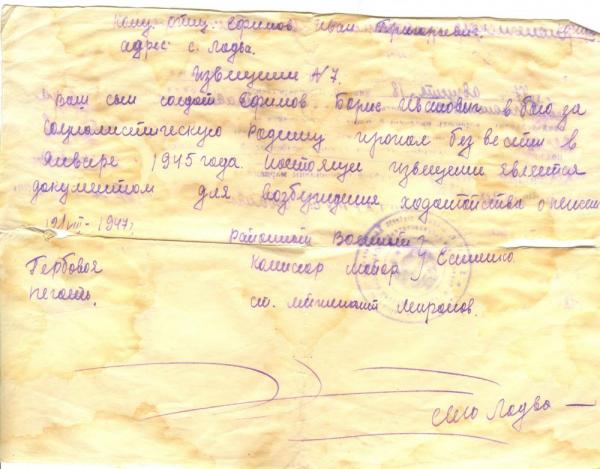 Кому: отцу Ефимов Иван Григорьевич
адрес: с. Ладва.
Извещение №7.
Ваш сын солдат Ефимов Борис Иванович в бою за
Социалистическую Родину пропал без вести в
Январе 1945 года. Настоящие извещение является
документом для возбуждения ходатайства о пенсии
12/VIII-1947г
Районный Военный
Гербовая
Комиссар майор
печать.
ст. лейтенант Миронов.
село Ладва